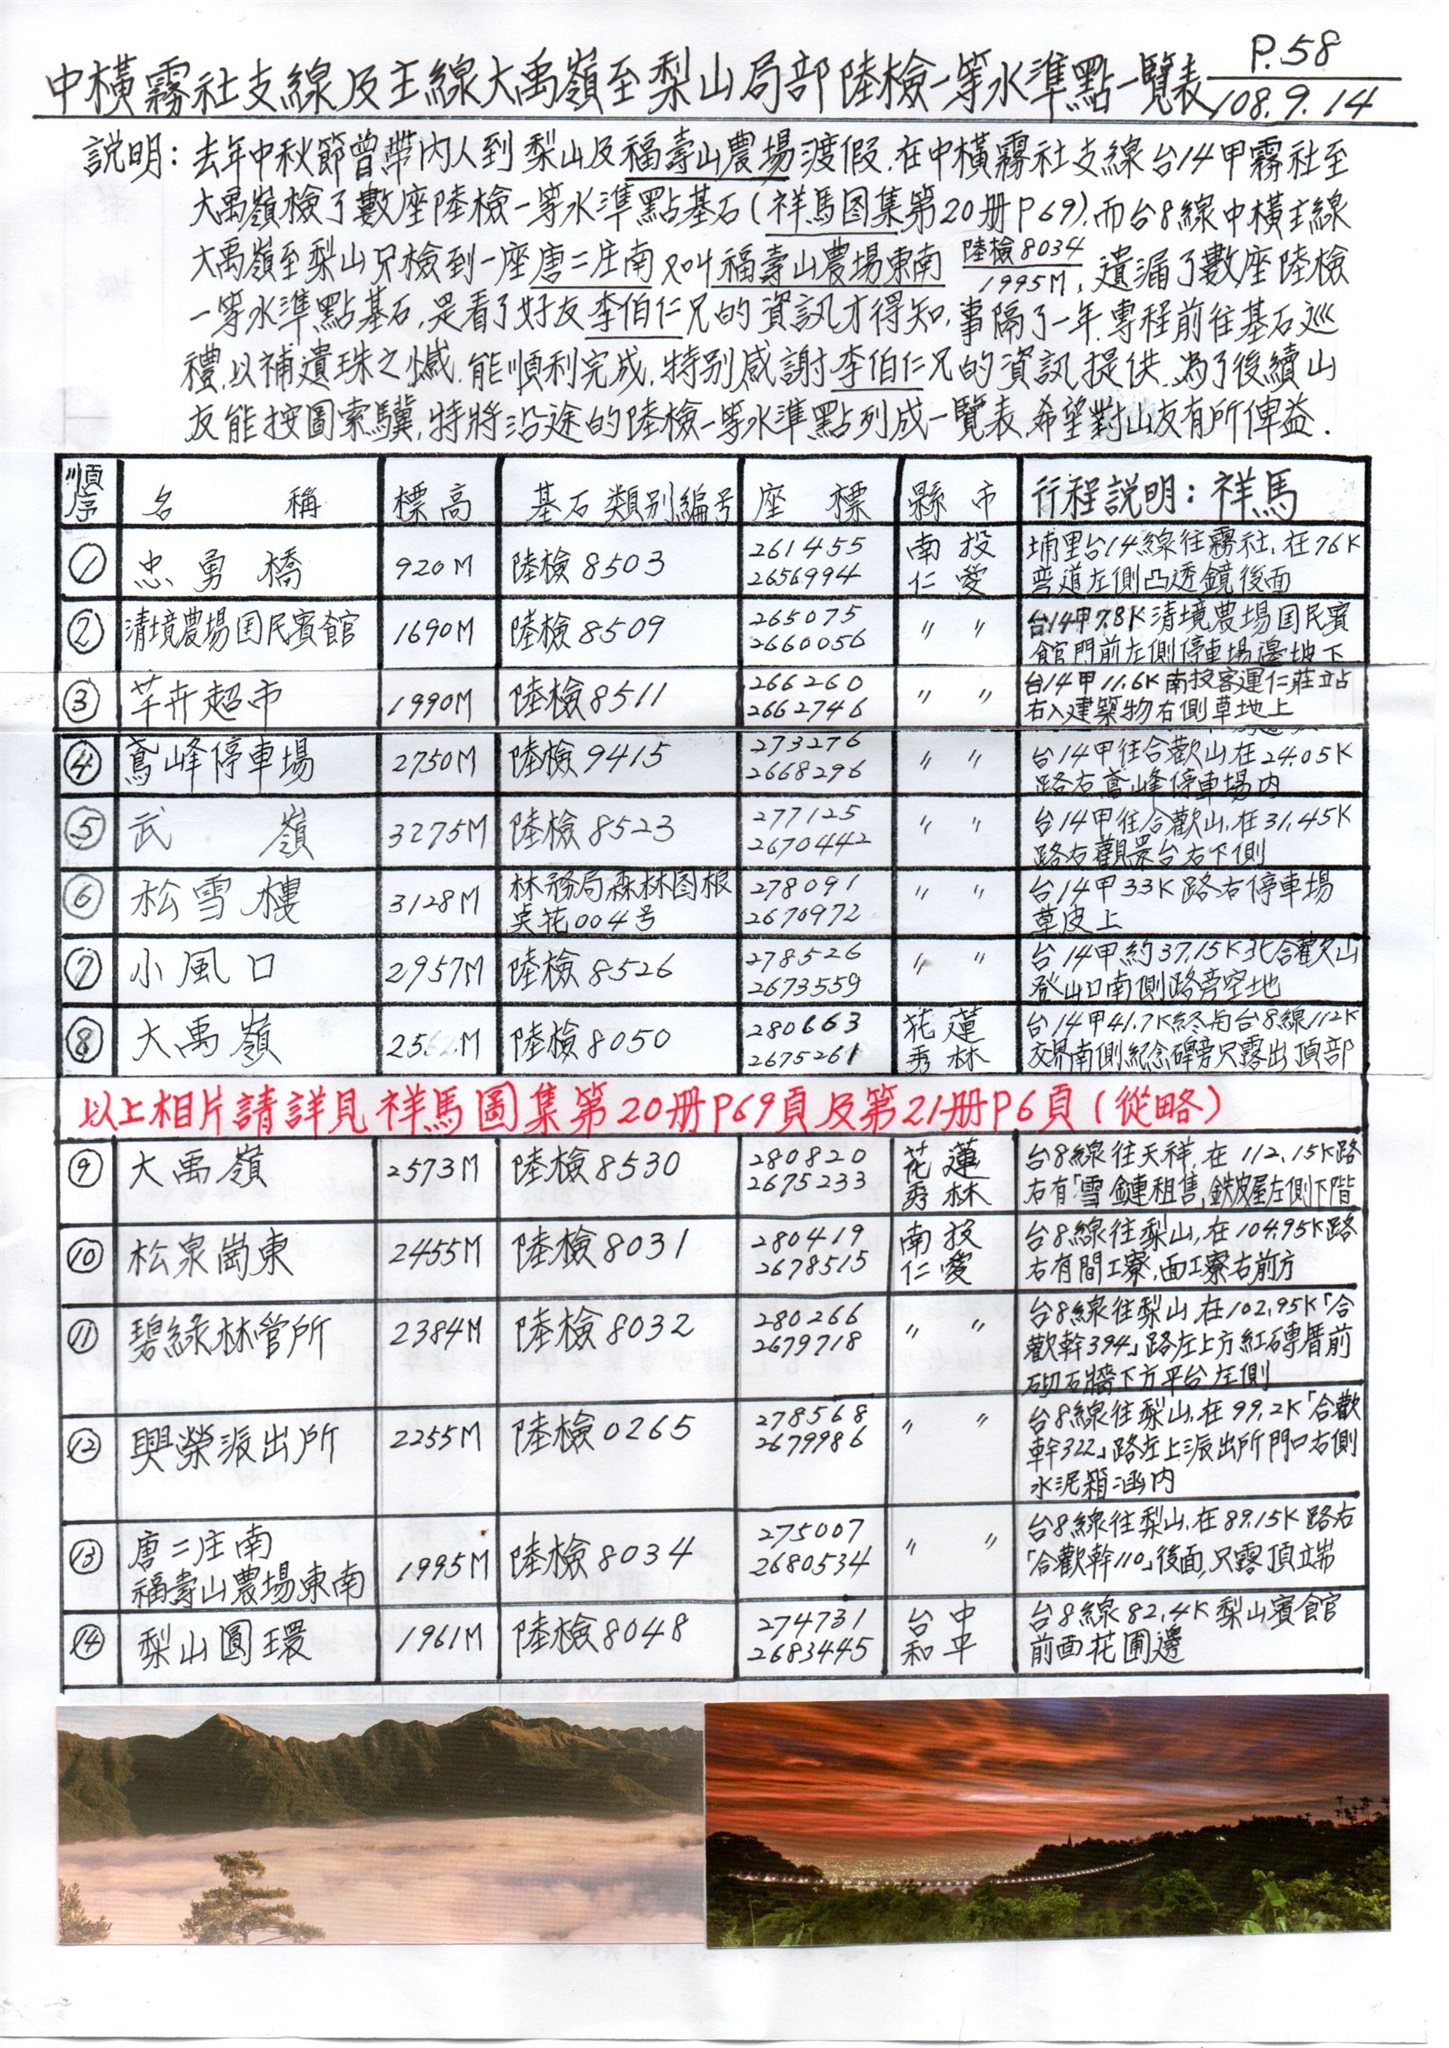 中橫霧社支線及主線大禹嶺至梨山局部陸檢一等水準點一覽表
P.58
108.9.14
說明：去年中秋節曾帶內人到梨山及福壽山農場渡假.在中橫霧社支線台14甲霧社至
大禹嶺檢了數座陸檢一等水準點基石(祥馬图集第20册P69),而台8線中橫主線
大禹嶺至梨山只檢到一座唐二庄南又叫福壽山農場東南 陸檢8034 1995M,遺漏了數座陸檢
一等水準點基石,是看了好友李伯仁兄的資訊才得知,事隔了一年.專程前往基石巡
禮,以補遺珠之憾.能順利完成.特别感謝李伯仁兄的資訊提供.為了後續山
友能按圖索驥,特將沿途的陸檢一等水準點列成一覽表.希望對山友有所俾益.
順序 名稱 標高 基石類别編号 座標 縣市 行程說明：祥馬
① 忠勇橋 920M 陸檢8503 261455 2656994 南投仁愛 埔里台14線往霧社.在76K
彎道左側凸透鏡後面
② 清境農場国民賓館 1690M 陸檢8509 265075 2660056 〃 〃 台14甲7.8K清境農場国民賓
館門前左側停車場邊坡下
③ 芉卉超市 1990M 陸檢8511 266260 2662746 〃 〃 台14甲11.6K南投客運仁莊立站
右入建築物右側草地上
④ 鳶峰停車場 2750M 陸檢9415 273276 2668296 〃 〃 台14甲往合歡山在24.05K
路右鳶峰停車場内
⑤ 武嶺 3275M 陸檢8523 277125 2670442 〃 〃 台14甲往合歡山.在31.45K
路右觀景台右下側
⑥ 松雪樓 3128M 林務局森林图根
吳花004号 278091 2670972 〃 〃 台14甲33K路右停車場
草皮上
⑦ 小風口 2957M 陸檢8526 278526 2673559 〃 〃 台14甲約37.15K北合歡山
登山口南側路旁空地
⑧ 大禹嶺 2562M 陸檢8050 280663 2675261 花蓮秀林 台14甲41.7K終与台8線112K
交界南側紀念碑旁只露出頂部
以上相片請詳見祥馬圖集第20册P69頁及第21册P6頁(從略)
⑨ 大禹嶺 2573M 陸檢8530 280820 2675233 花蓮秀林 台8線往天祥.在112.15K路
右有「雪鏈租售」鉄皮屋左側下階
⑩ 松泉崗東 2455M 陸檢8031 280419 2678515 南投仁愛 台8線往梨山,在104.95K路
右有間工寮,面工寮右前方
⑪ 碧綠林管所 2384M 陸檢8032 280266 2679718 〃 〃 台8線往梨山.在102.95K「合
歡幹394」路左上方紅磚厝前
砌石牆下方平台左側
⑫ 興榮派出所 2255M 陸檢0265 278568 2679986 〃 〃 台8線往梨山.在99.2K「合歡
幹322」路左上派出所門口右側
水泥箱涵内
⑬ 唐二庄南
福壽山農場東南 1995M 陸檢8034 275007 2680534 〃 〃 台8線往梨山.在89.15K路右
「合歡幹110」後面,只露頂立端
⑭ 梨山圓環 1961M 陸檢8048 274731 2683445 台中和平 台8線82.4K梨山賓館
前面花圃邊